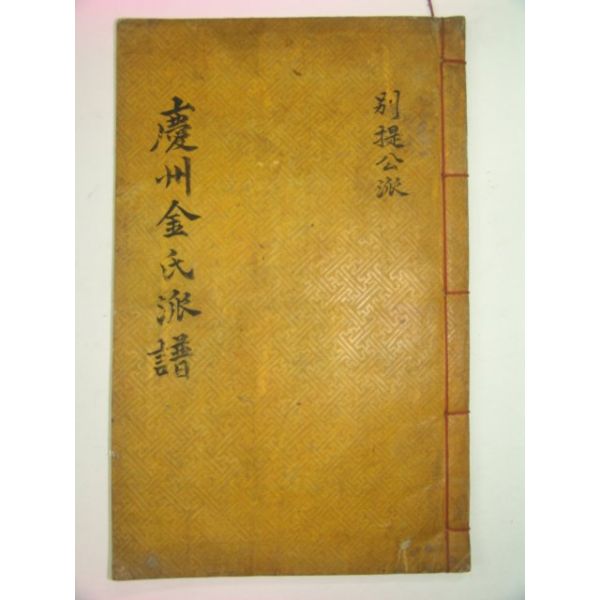 別提公派
慶州金氏派譜